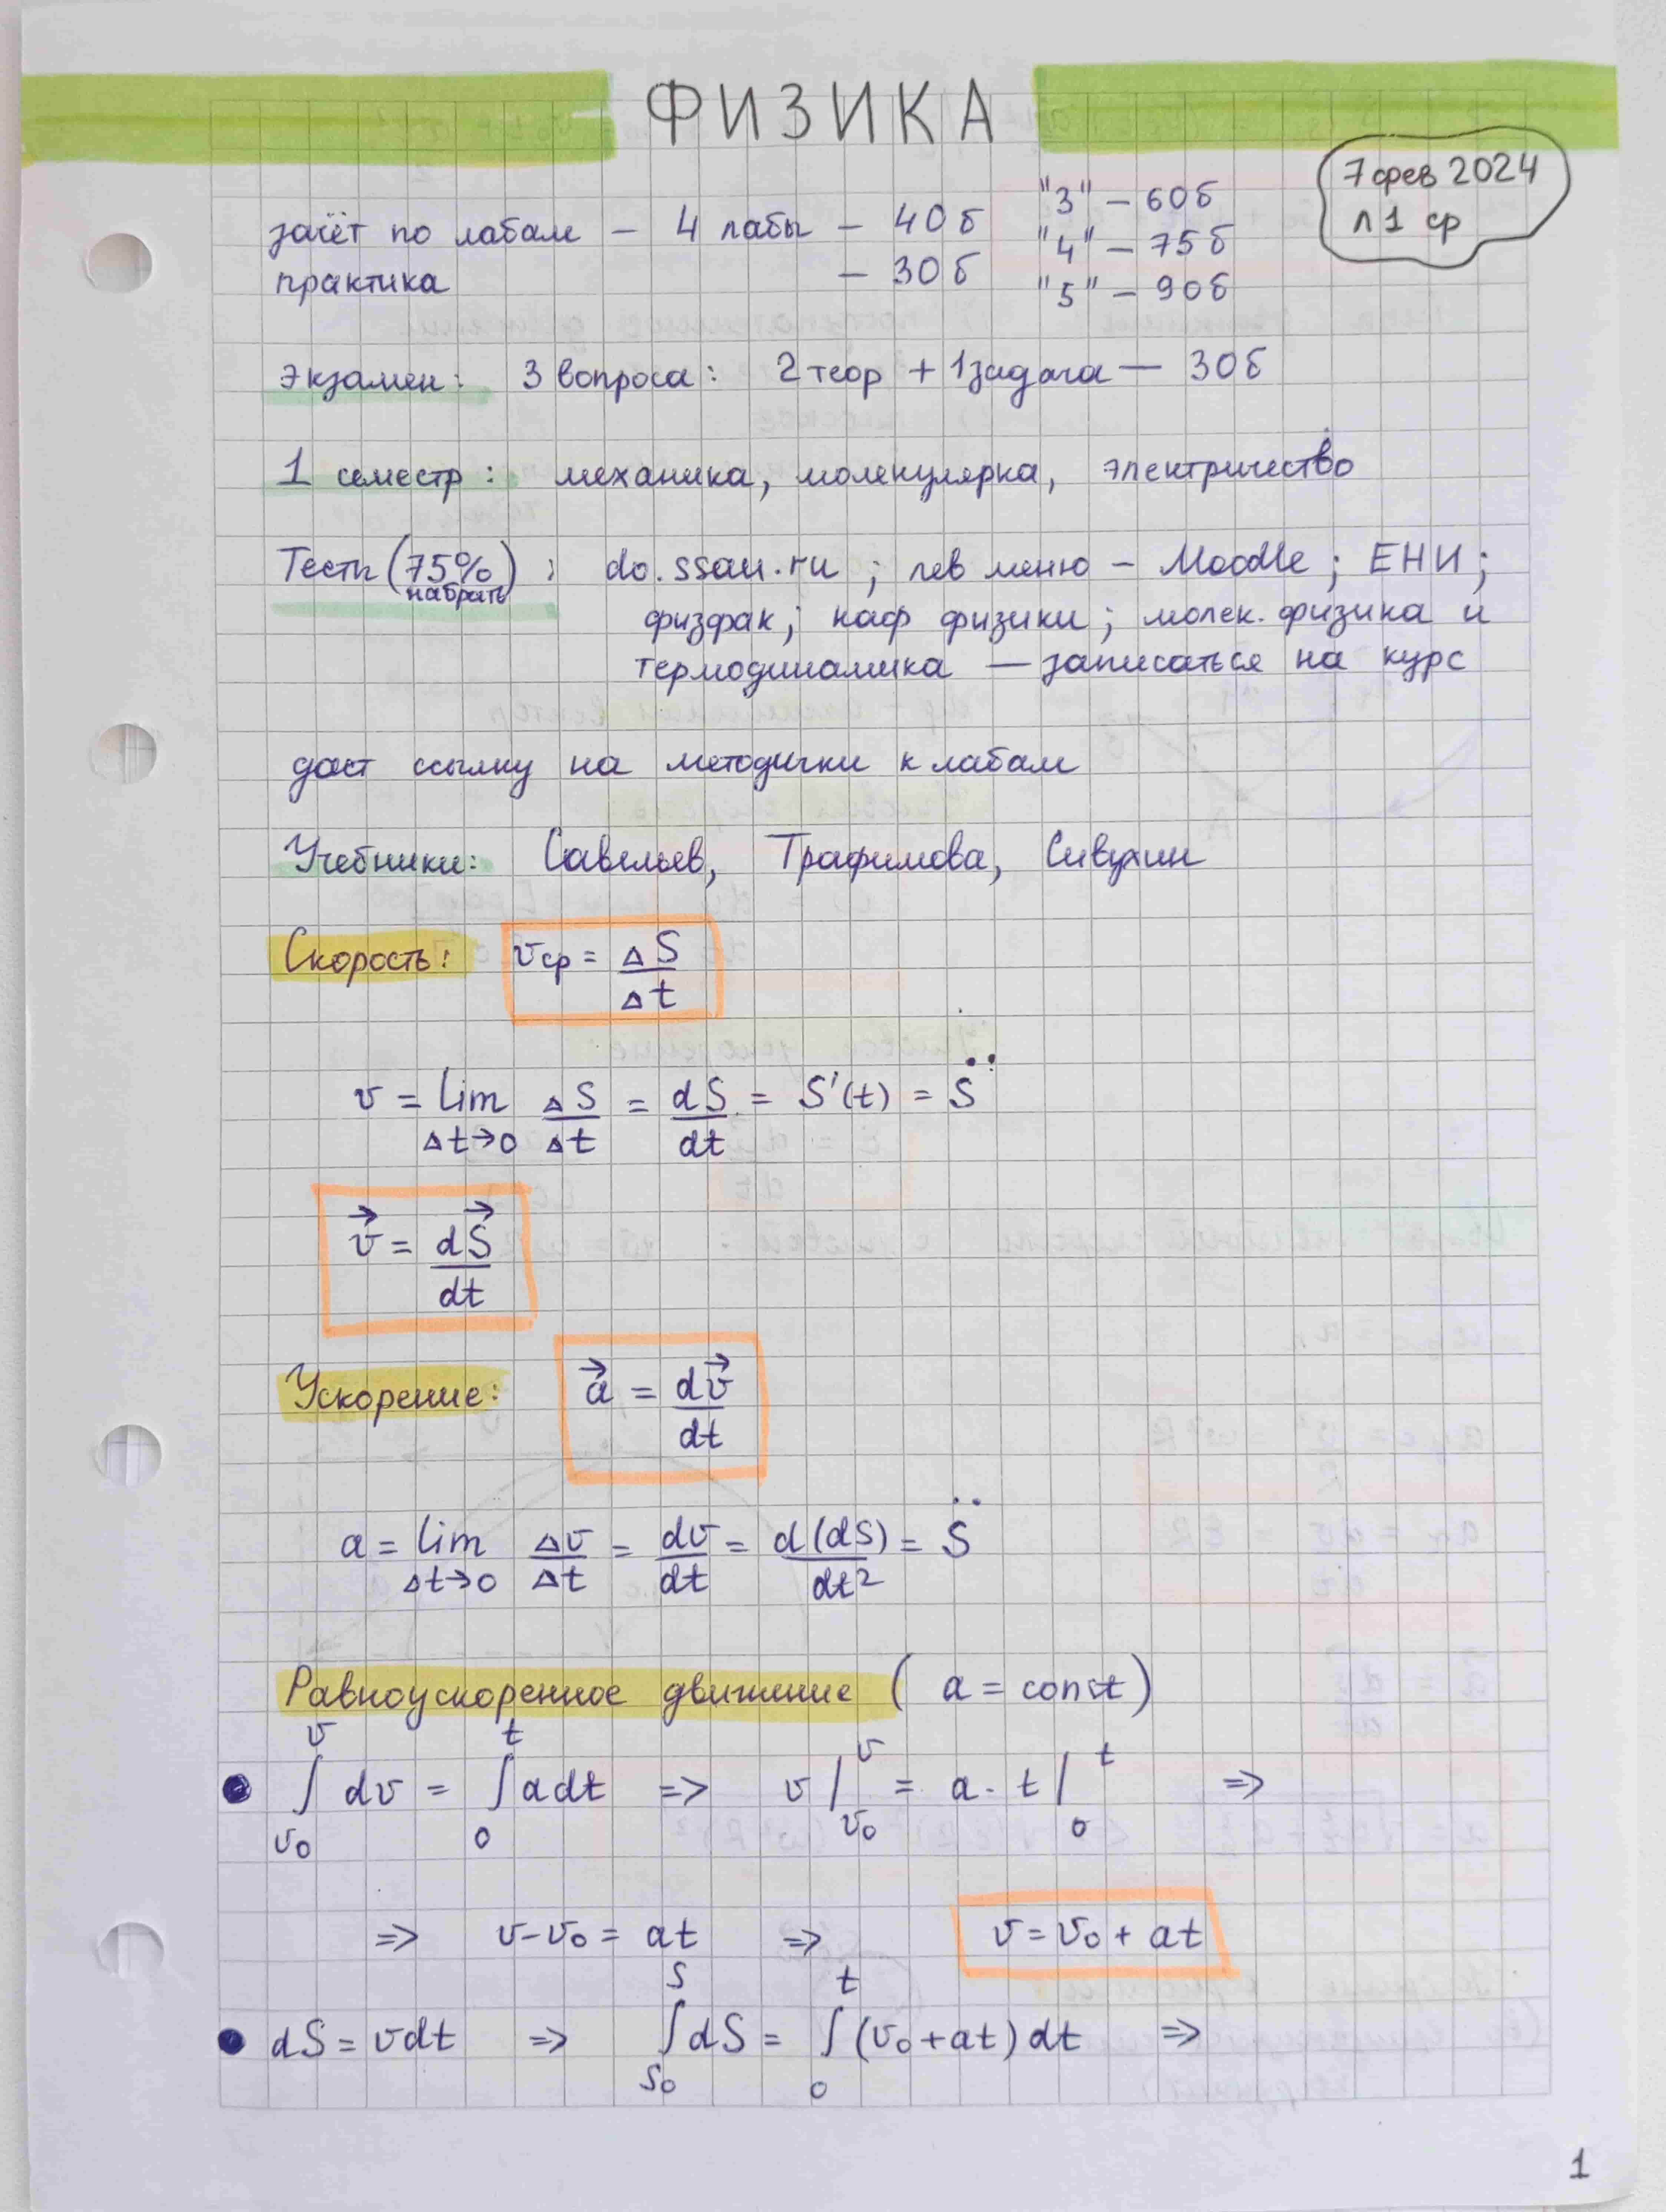 ФИЗИКА
7 фев 2024
л 1 ср
зачёт по лабам – 4 лабы – 40 б
практика – 30 б
"3" – 60 б
"4" – 75 б
"5" – 90 б
Экзамен: 3 вопроса: 2 теор + 1 задача — 30 б
1 семестр: механика, молекулярка, электричество
Тесты (75%) : do.ssau.ru ; лев меню – Moodle ; ЕНИ ;
набрать
физфак; каф физики ; молек. физика и
термодинамика — записаться на курс
даст ссылку на методички к лабам
Учебники: Савельев, Трафимова, Сивухин
Скорость: v_ср = ΔS/Δt
v = lim_{Δt→0} ΔS/Δt = dS/dt = S'(t) = S̈
v⃗ = dS⃗/dt
Ускорение: a⃗ = dv⃗/dt
a = lim_{Δt→0} Δv/Δt = dv/dt = d(dS)/dt² = S̈
Равноускоренное движение ( a = const )
• ∫_{v₀}^{v} dv = ∫_{0}^{t} a dt => v |_{v₀}^{v} = a · t |_{0}^{t} =>
=> v – v₀ = at => v = v₀ + at
• dS = v dt => ∫_{S₀}^{S} dS = ∫_{0}^{t} (v₀ + at) dt =>
1